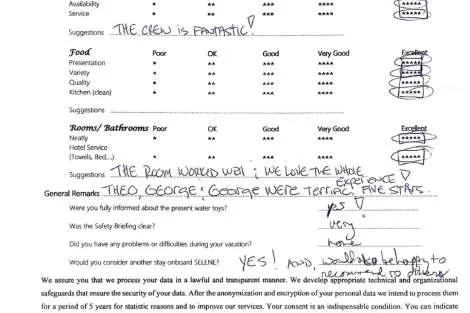 Availability * ** *** **** *****
Service * ** *** **** *****
Suggestions THE CREW IS FANTASTIC!
Food Poor OK Good Very Good Excellent
Presentation * ** *** **** *****
Variety * ** *** **** *****
Quality * ** *** **** *****
Kitchen (clean) * ** *** **** *****
Suggestions
Rooms/ Bathrooms Poor OK Good Very Good Excellent
Neatly * ** *** **** *****
Hotel Service
(Towels, Bed...) * ** *** **** *****
Suggestions THE ROOM WORKED WELL; WE LOVE THE WHOLE
EXPERIENCE!
General Remarks THEO, GEORGE; George WERE Terrific, FIVE STARS.
Were you fully informed about the present water toys? yes!
Was the Safety Briefing clear? very
Did you have any problems or difficulties during your vacation? none
Would you consider another stay onboard SELENE? YES! AND, would be happy to
recommend to others
We assure you that we process your data in a lawful and transparent manner. We develop appropriate technical and organizational
safeguards that ensure the security of your data. After the anonymization and encryption of your personal data we intend to process them
for a period of 5 years for statistic reasons and to improve our services. Your consent is an indispensable condition. You can indicate